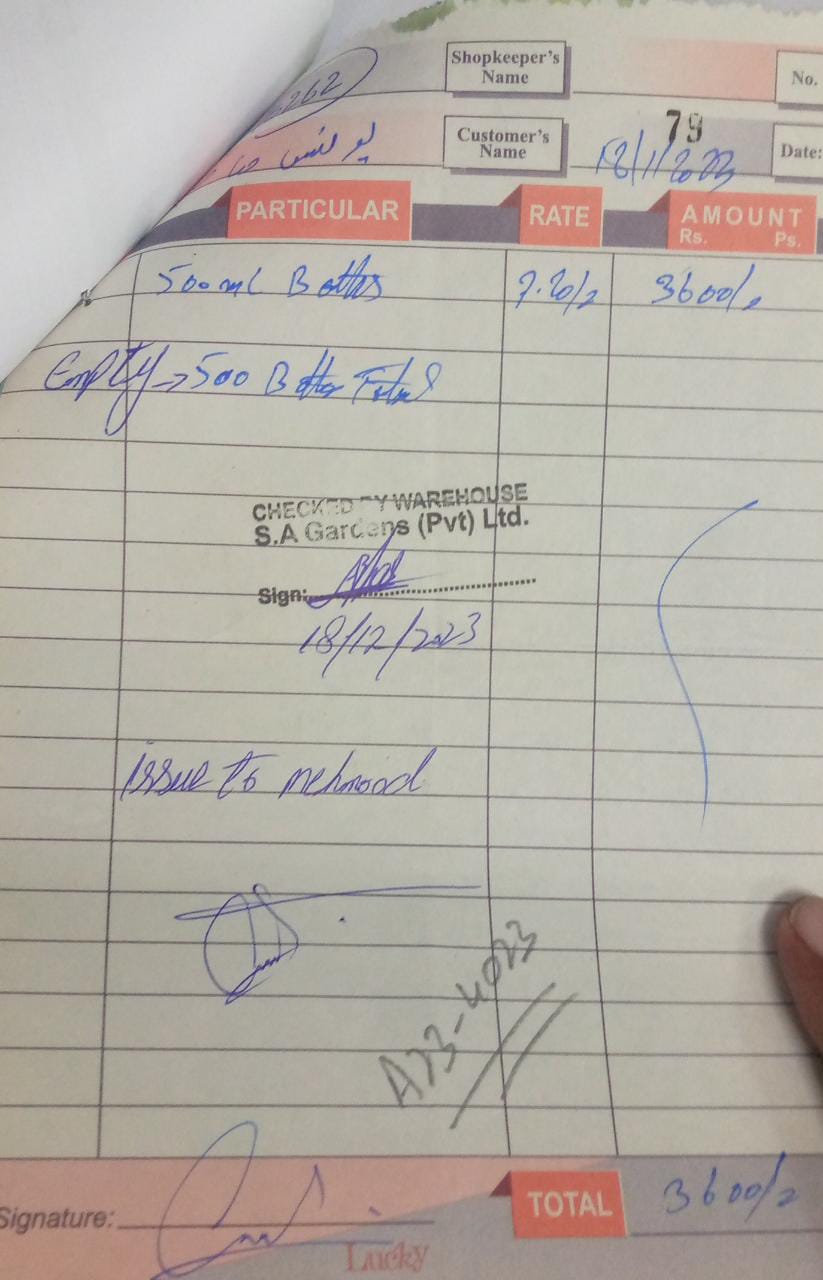 262
Shopkeeper's Name
No.
Customer's Name
79
18/1/2023
Date:
PARTICULAR RATE AMOUNT
Rs. Ps.
500ml Bottles 7.20/= 3600/=
Empty → 500 Bottles Total
CHECKED BY WAREHOUSE
S.A Gardens (Pvt) Ltd.
Sign:
18/12/2023
issue to mehmood
A23-4023
TOTAL 3600/=
Signature:
Lucky